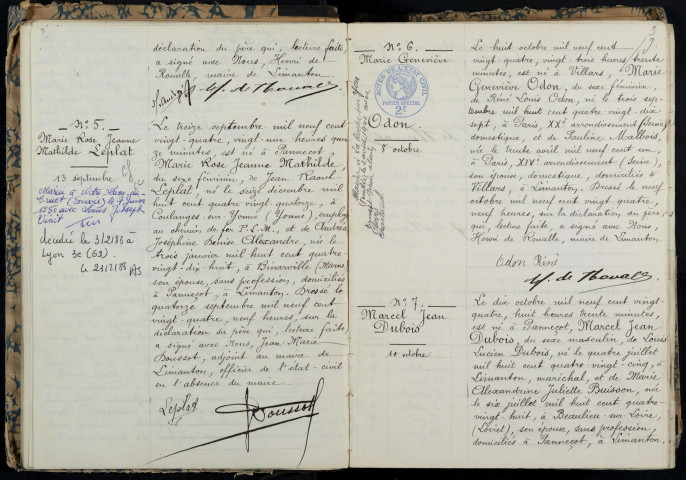 déclaration du père qui, lecture faite,
a signé avec Nous, Henri de
Roualle, maire de Limanton.
H. de Roualle
N° 5.
Marie Rose Jeanne
Mathilde Leplat
13 septembre
décédée le 3/2/88 à
Lyon 3e (69).
Le treize septembre mil neuf cent
vingt-quatre, vingt-une heures quin
ze minutes, est née à Pannecot
Marie Rose Jeanne Mathilde,
du sexe féminin, de Jean Raoul
Leplat, né le seize décembre mil
huit cent quatre vingt quatorze, à
Coulanges sur Yonne (Yonne), employé
au chemin de fer P.L.M., et de Andréa
Joséphine Denise Alexandre, née le
trois janvier mil huit cent quatre-
vingt-dix-huit, à Binarville (Marne)
son épouse, sans profession, domiciliés
à Pannecot, à Limanton. Dressé le
quatorze septembre mil neuf cent
vingt-quatre, neuf heures, sur la
déclaration du père qui, lecture faite,
a signé avec Nous, Jean-Marie
Boussot, adjoint au maire de
Limanton, officier de l'état-civil
en l'absence du maire.
Leplat
Boussot
3
N° 6.
Marie Geneviève
Odon
8 octobre
ACTES DE L'ETAT CIVIL
PAPIER SPÉCIAL
2F
Le huit octobre mil neuf cent
vingt-quatre, vingt-trois heures trente
minutes, est né à Villars, Marie
Geneviève Odon, du sexe féminin,
de René Louis Odon, né le trois sep-
tembre mil huit cent quatre-vingt-dix
sept, à Paris, XXe arrondissement (Seine),
domestique, et de Pauline Mallois,
née le trente avril mil neuf cent un,
à Paris, XIVe arrondissement (Seine),
son épouse, domestique, domiciliés à
Villars, à Limanton. Dressé le neuf
octobre mil neuf cent vingt quatre,
neuf heures, sur la déclaration du père
qui, lecture faite, a signé avec Nous,
Henri de Roualle, maire de Limanton.
Odon René
H. de Roualle
N° 7.
Marcel Jean
Dubois
10 octobre
Le dix octobre mil neuf cent vingt-
quatre, huit heures trente minutes,
est né à Pannecot, Marcel Jean
Dubois, du sexe masculin, de Louis
Lucien Dubois, né le quatre juillet
mil huit cent quatre-vingt-cinq, à
Limanton, maréchal, et de Marie
Alexandrine Juliette Buisson, née
le six juillet mil huit cent quatre-
vingt-huit, à Beaulieu-sur-Loire,
(Loiret), son épouse, sans profession,
domiciliés à Pannecot, à Limanton.